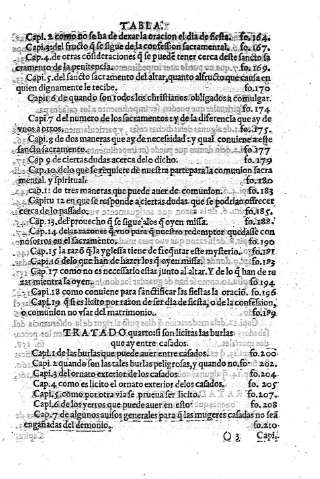 TABLA.
Capi. 2 como no se ha de dexar la oracion el dia de fiesta. fo.164.
Capi.3 del fructo q̃ se sigue de la confession sacramental. fo.167.
Cap.4 de otras cõsideraciones q̃ se puedẽ tener cerca deste sancto sa
cramento de la penitencia. fo.169.
Cap.5. del sancto sacramento del altar, quanto al fructo que causa en
quien dignamente le recibe. fo.170
Capit. 6 de quando son todos los christianos obligados a comulgar.
fo.174
Capi 7 del numero de los sacramentos: y de la diferencia que ay de
vnos a otros. fo.175.
Cap.8 de dos maneras que ay de necesidad: y qual conuiene a este
sancto sacramento. fo.177
Cap 9 de ciertas dudas acerca de lo dicho. fo.179
Cap.10. de lo que se requiere de nuestra parte para la comunion sacra
mental, y spiritual. fo.180
cap.11 de tres maneras que puede auer de comunion. fo.183
Capitu 12 en que se responde a ciertas dudas que se podrian ofrecer
cerca de lo passado. fo.185.
Cap.13. del prouecho q̃ se sigue a los q̃ oyen missa. fo.188
Cap.14 de las razones
nosotros en el sacramento. fo.190
Cap.15 la razõ q̃ la yglesia tiene de freq̃ntar este mysterio.
Cap.16 de lo que han de hazer los q̃ oyen missa.
Cap.17 como no es necessario estar junto al altar. Y de lo q̃ han de re
zar mientra la oyen. fo.194.
Cap.18 como conuiene para sanctificar las fiestas la oració. fo.196
Capi.19 q̃ es licito por razon de ser dia de fiesta, o de la confession,
o comunion no vsar del matrimonio.
TRATADO quarto si son licitas las burlas
que ay entre casados.
Capi.1 de las burlas que puede auer entre casados. fo.200
Capi.2 quando son las tales burlas peligrosas, y quando no. fo.202.
Capi.3 del ornato exterior de los casados. fo.204.
Cap.4 como es licito el ornato exterior de los casados. fo.205
Capi.5 como por otra via se prueua ser licito. fo.207.
Cap.6 de los yerros que puede auer en esto. fo.208
Cap.7 de algunos auisos generales para q̃ las mugeres casadas no seã
engañadas del demonio. fo.210
Q 3 Capi.